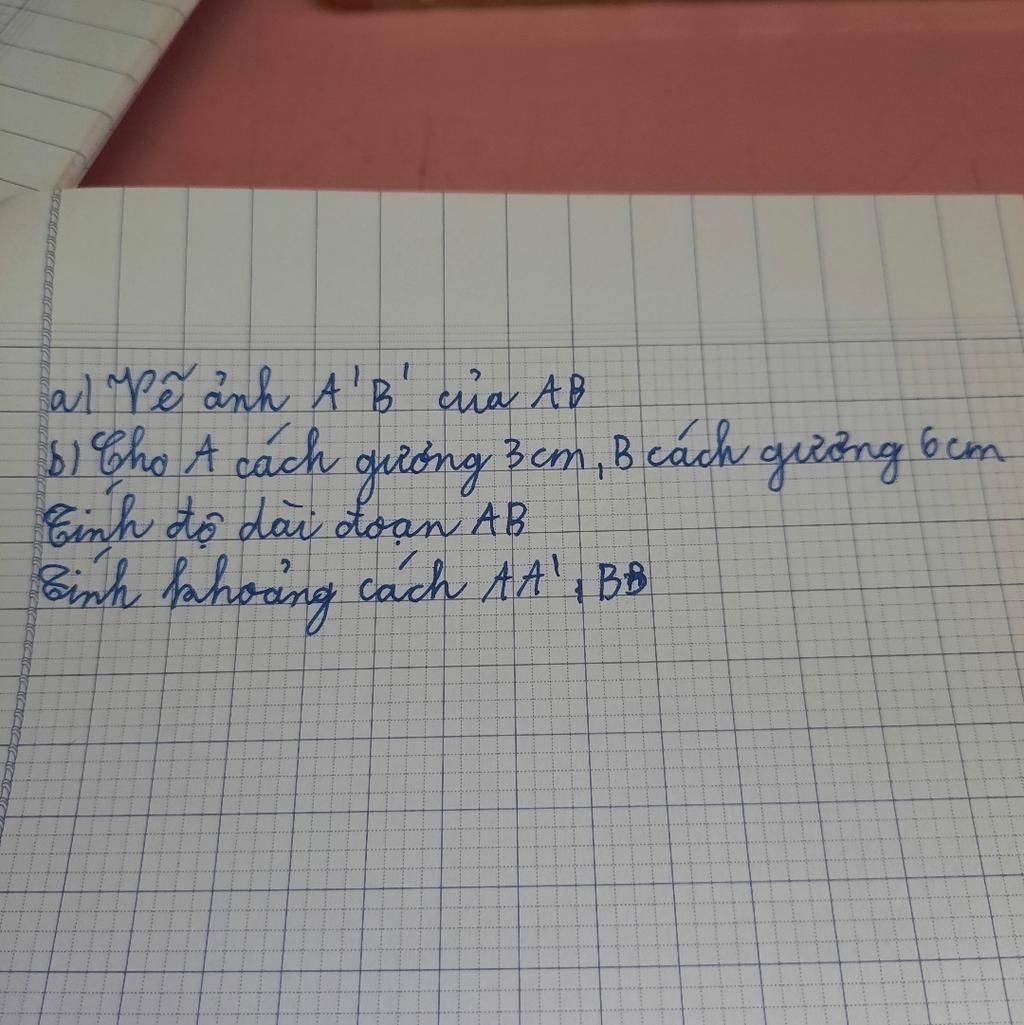 a) Vẽ ảnh A'B' của AB
b) Cho A cách gương 3cm, B cách gương 6cm
Tính độ dài đoạn AB
Tính khoảng cách AA', BB